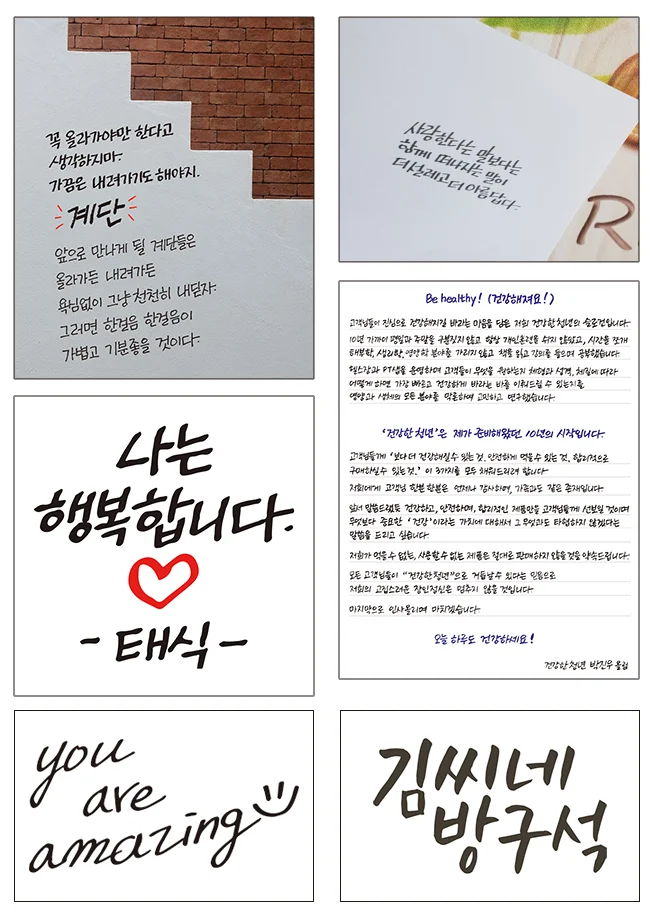 꼭 올라가야만 한다고
생각하지마.
가끔은 내려가기도 해야지.
계단
앞으로 만나게 될 계단들은
올라가든 내려가든
욕심없이 그냥 천천히 내딛자.
그러면 한걸음 한걸음이
가볍고 기분좋을 것이다.
사랑한다는 말보다는
함께 떠나자는 말이
더 설레고 더 아름답다.
R
Be healthy! (건강해져요!)
고객님들이 진심으로 건강해지길 바라는 마음을 담은 저희 건강한청년의 슬로건입니다.
10년 가까이 평일과 주말을 구분짓지 않고 항상 개인훈련을 쉬지 않았고, 시간을 쪼개
해부학, 생리학, 영양학 분야를 가리지 않고 책을 읽고 강의를 들으며 공부했습니다.
헬스장과 PT샵을 운영하며 고객들이 무엇을 원하는지 체형과 성격, 체질에 따라
어떻게 하면 가장 빠르고 건강하게 바라는 바를 이뤄드릴 수 있는지를
영양과 생체의 모든 분야를 막론하여 고민하고 연구했습니다.
'건강한 청년'은 제가 준비해왔던 10년의 시작입니다.
고객님들께 '보다 더 건강해질 수 있는 것, 안전하게 먹을 수 있는 것, 합리적으로
구매하실 수 있는 것.' 이 3가지를 모두 채워드리려 합니다.
저희에게 고객님 한분 한분은 언제나 감사하며, 가족과도 같은 존재입니다.
앞서 말씀드렸듯 건강하고, 안전하며, 합리적인 제품만을 고객님들께 선보일 것이며
무엇보다 중요한 '건강'이라는 가치에 대해서 그 무엇과도 타협하지 않겠다는
말씀을 드리고 싶습니다.
저희가 먹을 수 없는, 사용할 수 없는 제품은 절대로 판매하지 않을것을 약속드립니다.
모든 고객님들이 "건강한청년"으로 거듭날 수 있다는 믿음으로
저희의 고집스러운 장인정신은 멈추지 않을 것입니다.
마지막으로 인사올리며 마치겠습니다.
오늘 하루도 건강하세요!
건강한청년 박진우 올림
나는
행복합니다.
- 태식 -
you
are
amazing
김씨네
방구석